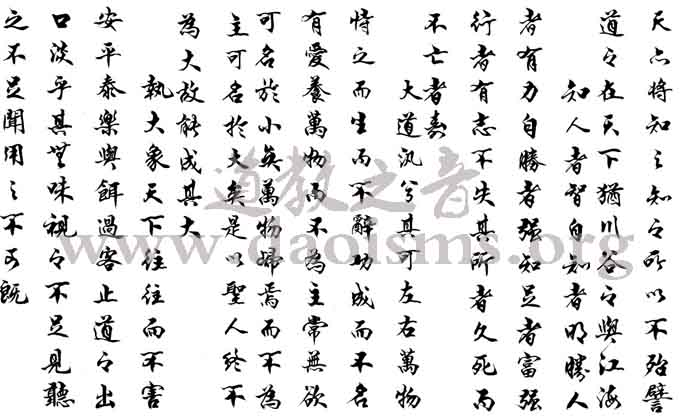 天亦将知之知之所以不殆譬
道之在天下猶川谷之與江海
知人者智自知者明勝人
者有力自勝者强知足者富强
行者有志不失其所者久死而
不亡者壽
大道汎兮其可左右萬物
恃之而生而不辭功成而不名
有愛養萬物而不為主常無欲
可名於小矣萬物歸焉而不為
主可名於大矣是以聖人終不
為大故能成其大
執大象天下往往而不害
安平泰樂與餌過客止道之出
口淡乎其無味視之不足見聽
之不足聞用之不可既
道教之音
www.daoisms.org